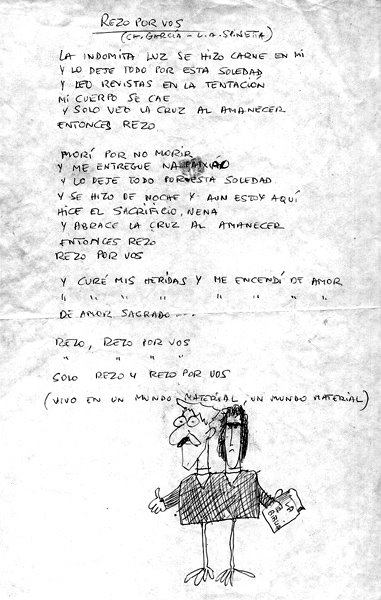 REZO POR VOS
(CH. GARCÍA - L.A. SPINETTA)
LA INDOMITA LUZ SE HIZO CARNE EN MI
Y LO DEJE TODO POR ESTA SOLEDAD
Y LEO REVISTAS EN LA TENTACION
MI CUERPO SE CAE
Y SOLO VEO LA CRUZ AL AMANECER
ENTONCES REZO
MORÍ POR NO MORIR
Y ME ENTREGUE
Y LO DEJE TODO POR ESTA SOLEDAD
Y SE HIZO DE NOCHE Y AUN ESTOY AQUÍ
HICE EL SACRIFICIO, NENA
Y ABRACE LA CRUZ AL AMANECER
ENTONCES REZO
REZO POR VOS
Y CURÉ MIS HERIDAS Y ME ENCENDÍ DE AMOR
" " " " " " " " "
DE AMOR SAGRADO ...
REZO, REZO POR VOS
" " " "
SOLO REZO Y REZO POR VOS
(VIVO EN UN MUNDO MATERIAL, UN MUNDO MATERIAL)
LA
BIBLIA